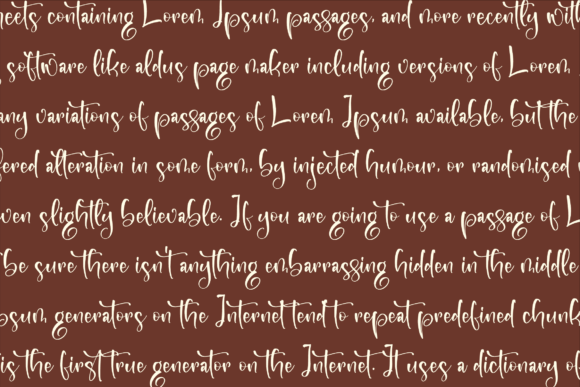 heets containing Lorem Ipsum passages, and more recently with
software like aldus page maker including versions of Lorem
any variations of passages of Lorem Ipsum available, but the
fered alteration in some form, by injected humour, or randomised
ven slightly believable. If you are going to use a passage of L
be sure there isn't anything embarrassing hidden in the middle
psum generators on the Internet tend to repeat predefined chunk
is the first true generator on the Internet. It uses a dictionary of